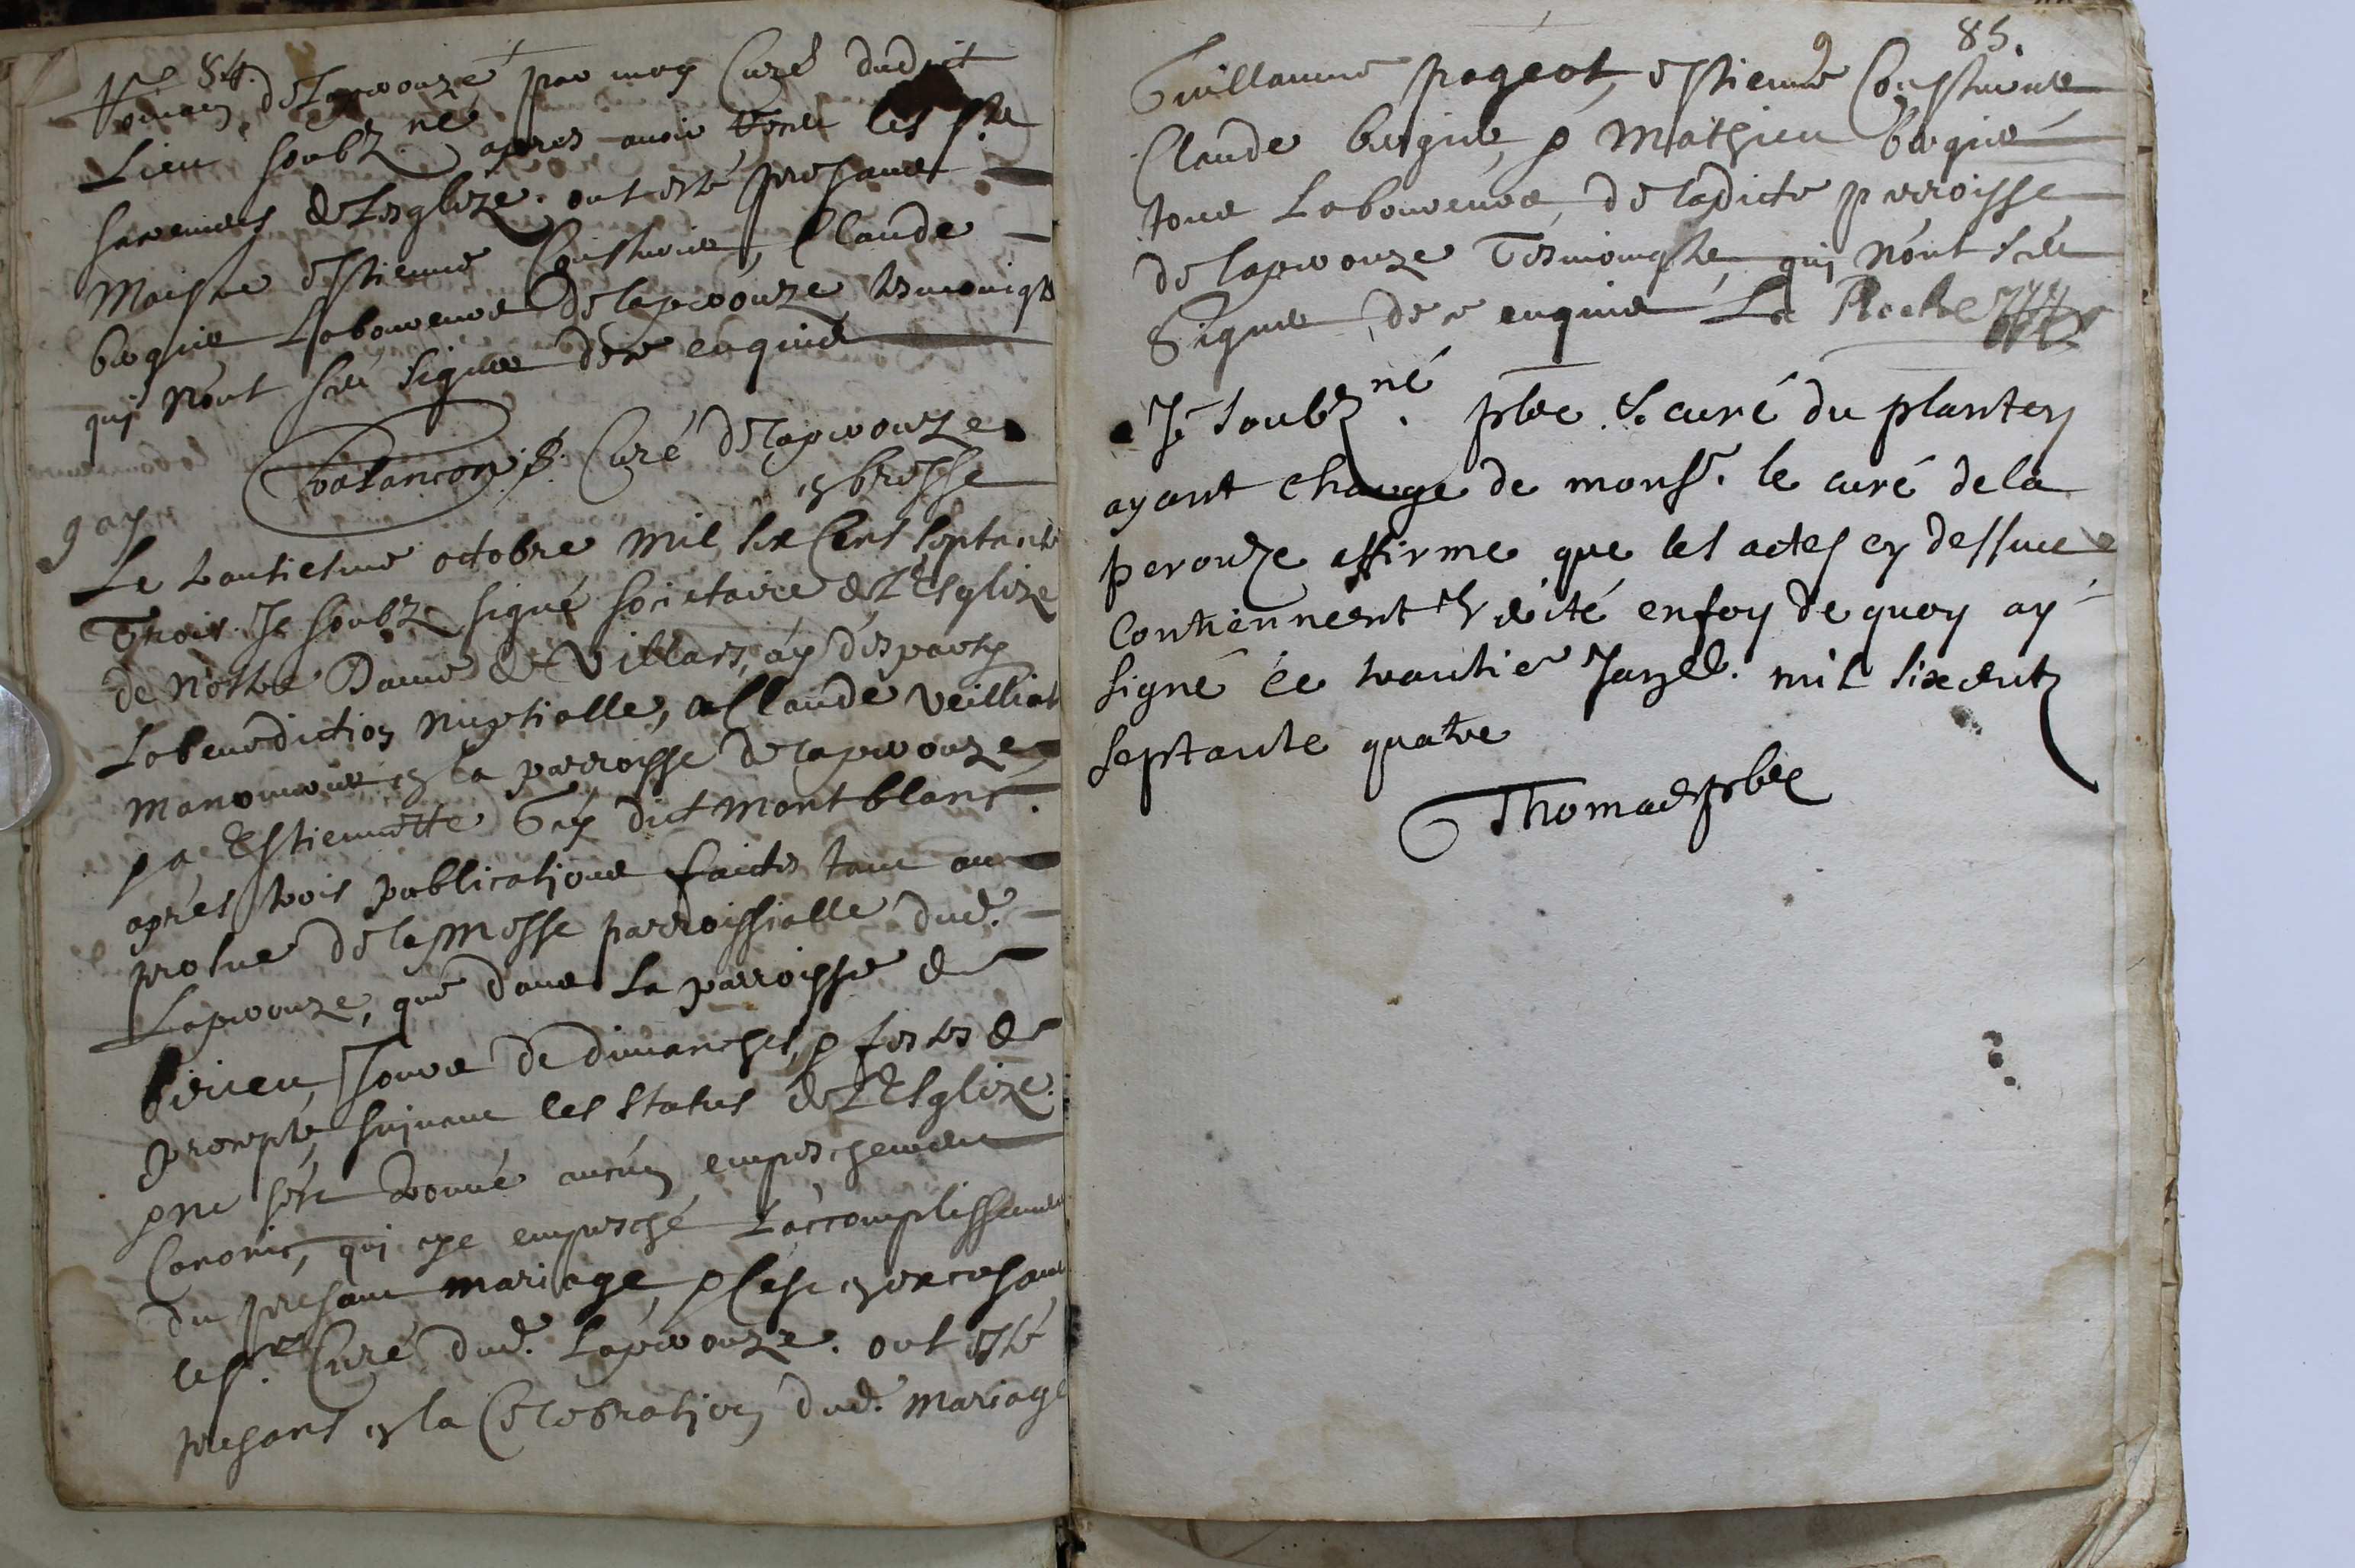 84.
Romain de Laperouze par moy Curé dudict
Lieu soubz.né apres avoir les Ste
Sacremens de Lesglize. ont esté presans
Maistre estienne Cousturier, Claude
bergier Laboureurs de laperouze tesmoings
qui n'ont sceu signer de ce enquis
Valancon p. Curé de laperouze
en bresse
gay
Le trantiesme octobre mil six Cens septante
Trois Je soubz signé societaire de L'Esglize
de Nostre Dame de Villars, ay desparty
La benediction nuptialle, a Claude Veilliat
manouvrier en la parroisse de laperouze
& a Estiennette Gay dict montblanc.
apres trois publications faictes tant au
prosne de la Messe parroissialle dud.
Laperouze, que dans La parroisse de
birieu, Jours de dimanches, & festes de
prompte, suivant les statues de L'Esglize.
& ne s'est trouvé aucun empeschement
Canonic, qui aye empesché L'accomplissement
du presant mariage, & c'est en excusant
le Sr. Curé dud. Laperouze. ont esté
presans en la Celebration dud. Mariage
85.
9
Guillaume pageot, estienne Cousturier
Claude bergier, & Mathieu bergier
tous Laboureurs, de ladicte parroisse
de laperouze Tesmoings, qui n'ont sceu
Signer, de ce enquis La Roche
Je soubz.né pbre & curé du plantey
ayant charge de monsr. le curé de la
perouze affirme que les actes cy dessus
contiennent verité en foy de quoy ay
signé ce trantie Janv. mil six centz
septante quatre
Thomas pbre